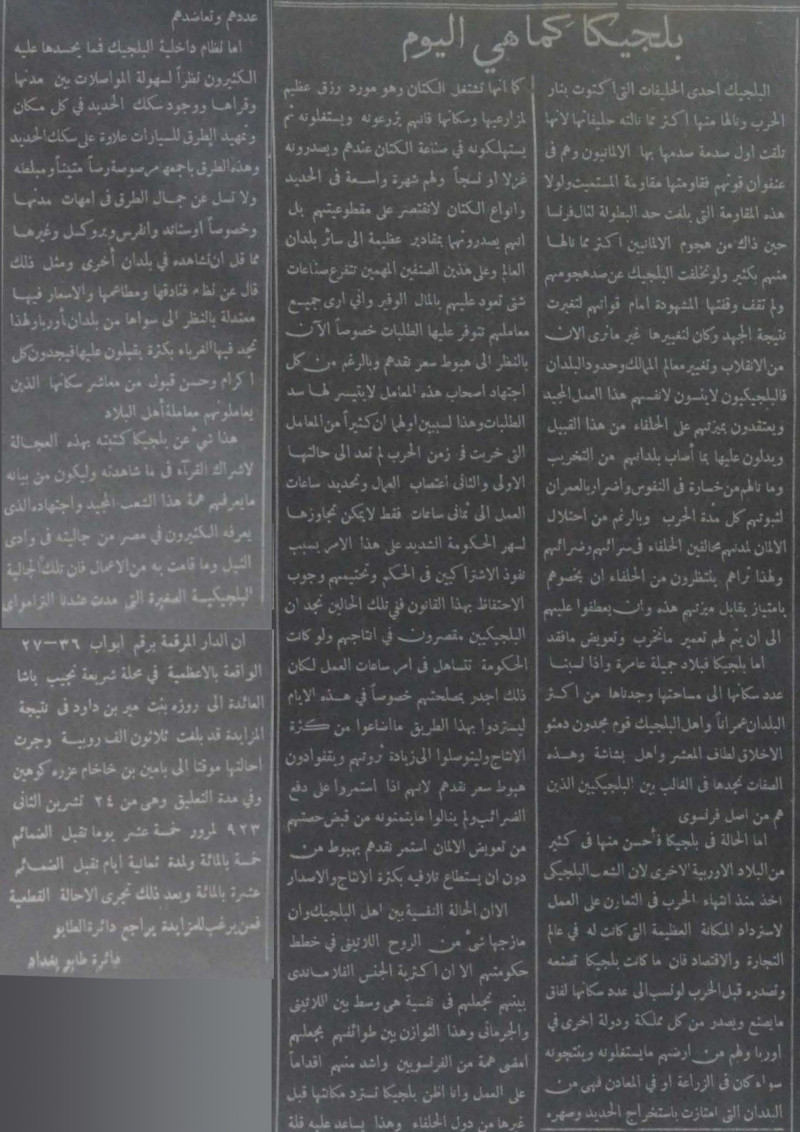 بلجيكا كما هي اليوم
البلجيك احدى الحليفات التى اكتوت بنار
الحرب ونالها منها اكثر مما نالته حليفاتها لانها
تلقت اول صدمة صدمها بها الالمانيون وهم فى
عنفوان قوتهم فقاومتها مقاومة المستميت ولولا
هذه المقاومة التى بلغت حد البطولة لنال فرنسا
حين ذاك من هجوم الالمانيين اكثر مما نالها
منهم بكثير ولو تخلفت البلجيك عن صد هجومهم
ولم تقف وقفتها المشهودة امام قواتهم لتغيرت
نتيجة الجهد وكان لتغييرها غير مانرى الان
من الانقلاب وتغيير معالم الممالك وحدود البلدان
فالبلجيكيون لاينسون لانفسهم هذا العمل المجيد
ويعتقدون بميزتهم على الحلفاء من هذا القبيل
ويدلون عليها بما أصاب بلدانهم من التخريب
وما نالهم من خسارة فى النفوس واضرار بالعمران
لثبوتهم كل مدة الحرب وبالرغم من احتلال
الالمان لمدنهم محالفين الحلفاء فى سرائهم وضرائهم
ولهذا تراهم ينتظرون من الحلفاء ان يخصوهم
بامتياز يقابل ميزتهم هذه وان يعطفوا عليهم
الى ان يتم لهم تعمير ماتخرب وتعويض مافقد
اما بلجيكا فبلاد جميلة عامرة واذا نسبنا
عدد سكانها الى مساحتها وجدناها من اكثر
البلدان عمراناً واهل البلجيك قوم مجدون دمثو
الاخلاق لطاف المعشر واهل بشاشة وهذه
الصفات نجدها فى الغالب بين البلجيكيين الذين
هم من اصل فرنسوى
اما الحالة فى بلجيكا فأحسن منها فى كثير
من البلاد الاوربية الاخرى لان الشعب البلجيكى
اخذ منذ انتهاء الحرب فى التعاون على العمل
لاسترداد المكانة العظيمة التى كانت له فى عالم
التجارة والاقتصاد فان ما كانت بلجيكا تصنعه
وتصدره قبل الحرب لو نسب الى عدد سكانها لفاق
مايصنع ويصدر من كل مملكة ودولة اخرى في
اوربا ولهم من ارضهم مايستغلونه وينتجونه
سواء كان فى الزراعة او في المعادن فهى من
البلدان التى امتازت باستخراج الحديد وصهره
كما انها تشتغل الكتان وهو مورد رزق عظيم
لمزارعيها وسكانها فانهم يزرعونه ويستغلونه ثم
يستهلكونه في صناعة الكتان عندهم ويصدرونه
غزلا او نسجاً ولهم شهرة واسعة فى الحديد
وانواع الكتان لاتقتصر على مقطوعيتهم بل
انهم يصدرونهما بمقادير عظيمة الى سائر بلدان
العالم وعلى هذين الصنفين المهمين تتفرع صناعات
شتى تعود عليهم بالمال الوفير وانى ارى جميع
معاملهم تتوفر عليها الطلبات خصوصاً الآن
بالنظر الى هبوط سعر نقدهم وبالرغم من كل
اجتهاد اصحاب هذه المعامل لايتيسر لها سد
الطلبات وهذا لسببين اولهما ان كثيراً من المعامل
التى خربت فى زمن الحرب لم تعد الى حالتها
الاولى والثانى اعتصاب العمال وتحديد ساعات
العمل الى ثمانى ساعات فقط لايمكن تجاوزها
لسهر الحكومة الشديد على هذا الامر بسبب
نفوذ الاشتراكيين فى الحكم وتحتيمهم وجوب
الاحتفاظ بهذا القانون ففى تلك الحالين تجد ان
البلجيكيين مقصرون فى انتاجهم ولو كانت
الحكومة تتساهل فى امر ساعات العمل لكان
ذلك اجدر بمصلحتهم خصوصاً فى هذه الايام
ليستردوا بهذا الطريق مااضاعوا من كثرة
الانتاج وليتوصلوا الى زيادة ثروتهم ويقفوا دون
هبوط سعر نقدهم لانهم اذا استمروا على دفع
الضرائب ولم ينالوا مايتمنونه من قبض حصتهم
من تعويض الالمان استمر نقدهم بهبوط من
دون ان يستطاع تلافيه بكثرة الانتاج والاصدار
الا ان الحالة النفسية بين اهل البلجيك وان
مازجها شئ من الروح اللاتينى فى خطط
حكومتهم الا ان اكثرية الجنس الفلامندى
بينهم تجعلهم فى نفسية هى وسط بين اللاتينى
والجرمانى وهذا التوازن بين طوائفهم يجعلهم
امضى همة من الفرنسويين واشد منهم اقداماً
على العمل وانا اظن بلجيكا تسترد مكانتها قبل
غيرها من دول الحلفاء وهذا يساعد عليه قلة
عددهم وتعاضدهم
اما نظام داخلية البلجيك فمما يحسدها عليه
الكثيرون نظراً لسهولة المواصلات بين مدنها
وقراها ووجود سكك الحديد في كل مكان
وتمهيد الطرق للسيارات علاوة على سكك الحديد
وهذه الطرق باجمعها مرصوصة رصاً متيناً ومبلطه
ولا تسل عن جمال الطرق فى امهات مدنها
وخصوصاً اوستاند وانفرس وبروكسل وغيرها
مما قل ان تشاهده في بلدان أخرى ومثل ذلك
قال عن نظام فنادقها ومطاعمها والاسعار فيها
معتدلة بالنظر الى سواها من بلدان أوربا ولهذا
تجد فيها الغرباء بكثرة يقبلون عليها فيجدون كل
اكرام وحسن قبول من معاشر سكانها الذين
يعاملونهم معاملة أهل البلاد
هذا شئ عن بلجيكا كتبته بهذه العجالة
لاشراك القرآء فى ما شاهدته وليكون من بيانه
مايعرفهم همة هذا الشعب المجيد واجتهاده الذى
يعرفه الكثيرون في مصر من جاليته فى وادى
النيل وما قامت به من الاعمال فان تلك الجالية
البلجيكية الصغيرة التى مدت عندنا الترامواى
ان الدار المرقمة برقم ابواب ٣٦—٢٧
الواقعة بالاعظمية في محلة شريعة نجيب باشا
العائدة الى روزه بنت مير بن داود فى نتيجة
المزايدة قد بلغت ثلاثون الف روبية وجرت
احالتها موقتا الى يامين بن خاخام عزره كوهين
وفي مدة التعليق وهى من ٢٤ تشرين الثانى
٩٢٣ لمرور خمسة عشر يوما تقبل الضمائم
خمسة بالمائة ولمدة ثمانية ايام تقبل الضمائم
عشرة بالمائة وبعد ذلك تجرى الاحالة القطعية
فمن يرغب للمزايدة يراجع دائرة الطابو
دائرة طابو بغداد